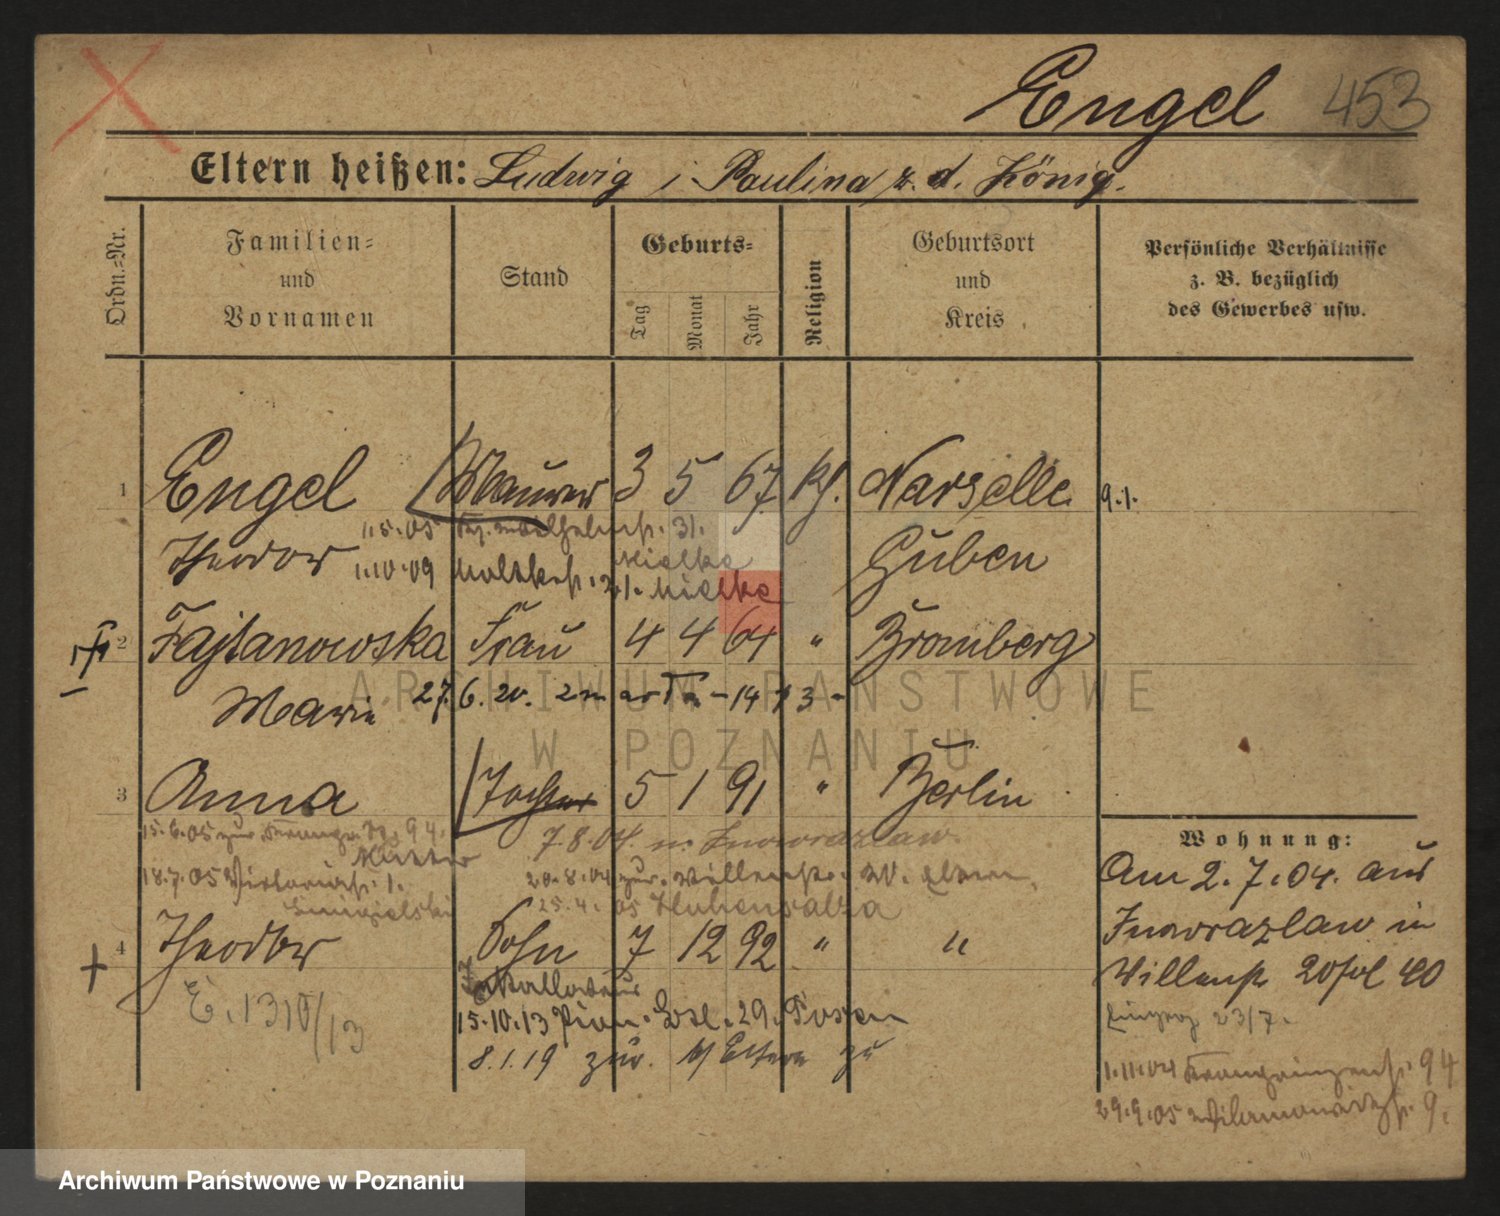 Engel 453
Eltern heißen: Ludwig i Paulina z. d. König.
Ordn.=Nr.
Familien=
und
Vornamen
Stand
Geburts=
Tag
Monat
Jahr
Religion
Geburtsort
und
Kreis
Persönliche Verhältnisse
z. B. bezüglich
des Gewerbes usw.
1 Engel Maurer 3 5 67 kf. 9.1.
1.5.05 31.
Theodor Mielke Guben
1.10.09 Moltkestr. 21. Mielke
2 Fajtanowska Frau 4 4 64 " Bromberg
Marie 27.6.20.
3 Anna Tochter 5 1 91 " Berlin
15.6.05 zur 94. 7.8.04 n. Inowrazlaw.
18.7.05 Victoriastr. 1. 20.8.04 zur. z. Eltern.
25.4.05 Hohensalza
4 Theodor Sohn 7 12 92 " "
E. 1310/13 Installateur
15.10.13 Pion. Batl. 29. Posen
8.1.19 zur. b/ Eltern zu
Wohnung:
Am 2.7.04. aus
Inowrazlaw in
23/7.
1.11.04 Kronprinzenstr. 94
29.9.05 9.
ARCHIWUM PAŃSTWOWE
W POZNANIU
Archiwum Państwowe w Poznaniu